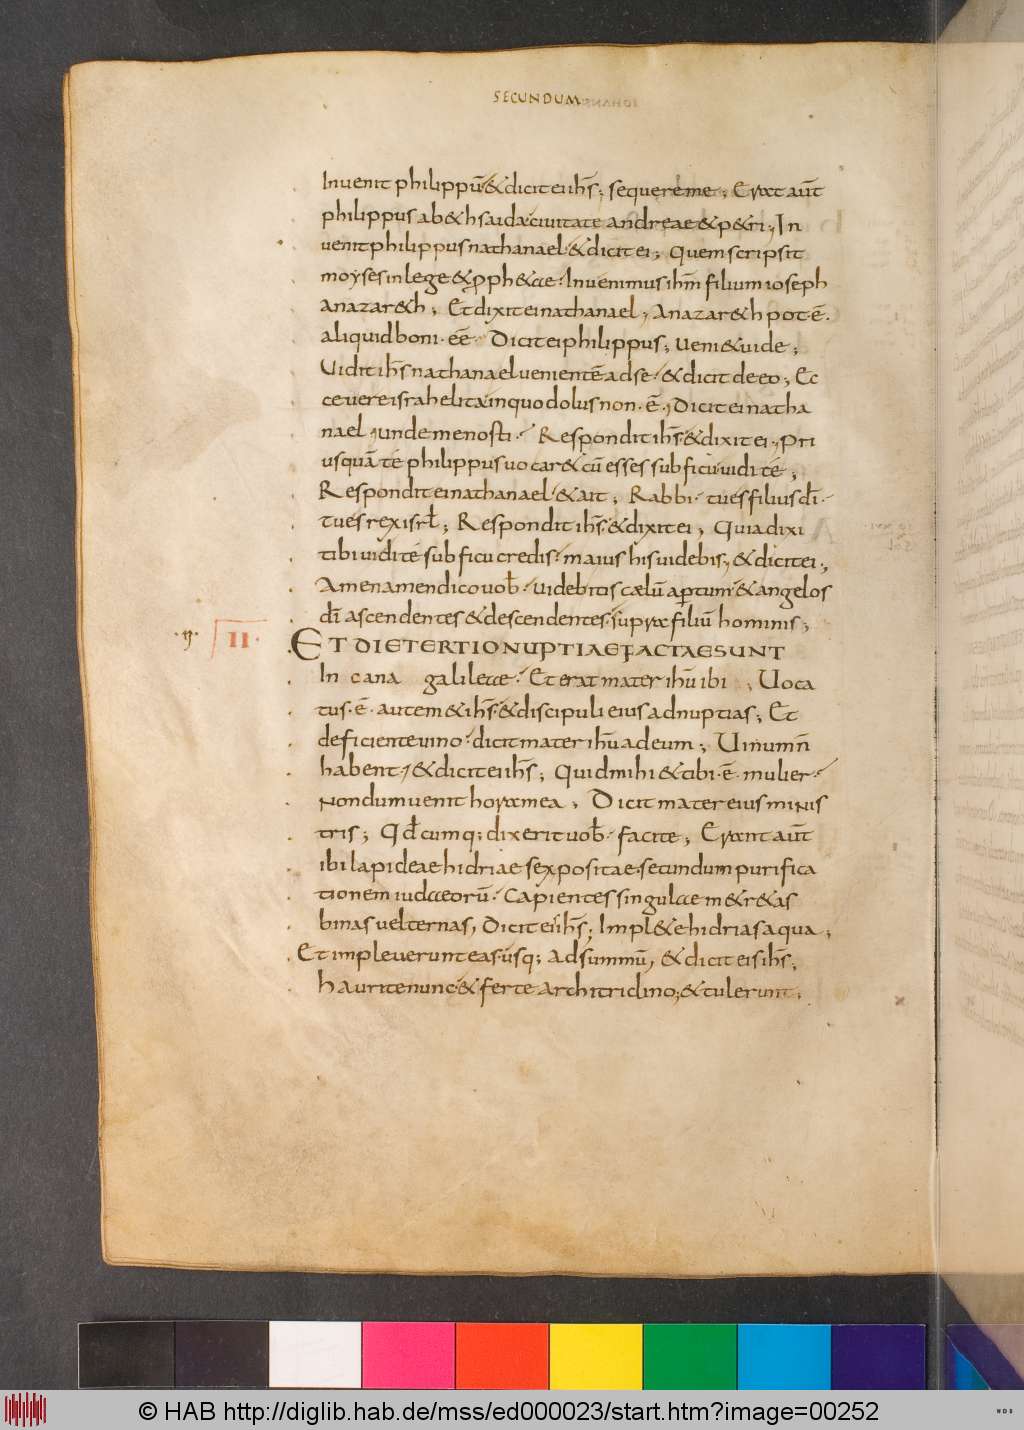 SECUNDUM
Inuenit philippū & dicit ei ihs̄; sequere me; Erat aūt
philippus ab &hsaida ciuitate andreae & p&ri; In
uenit philippus nathanael & dicit ei; Quem scripsit
moyses in lege & proph&ae. Inuenimus ihm̄ filium ioseph
a nazar&h; Et dixit ei nathanael, A nazar&h pot·ē·
aliquid boni·eē· Dicit ei philippus; Ueni & uide;
Uidit ihs̄ nathanael uenientē ad se & dicit de eo; Ec
ce uere israhelita in quo dolus non·ē· Dicit ei natha
nael, unde me nosti· Respondit ihs̄ & dixit ei, Pri
usquā te philippus uocar& cū esses sub ficu uidi te;
Respondit ei nathanael & ait; Rabbi· tu es filius dī·
tu es rex isrl̄; Respondit ihs̄ & dixit ei, Quia dixi
tibi uidi te sub ficu credis· maius his uidebis, & dicit ei·,
Amen amen dico uob̄· uidebitis cælū aptum & angelos
dī ascendentes & descendentes supra filiū hominis;
II·
ET DIE TERTIO NUPTIAE FACTAE SUNT
In cana galileae· Et erat mater ihū ibi; Uoca
tus·ē· autem & ihs̄ & discipuli eius ad nuptias; Et
deficiente uino· dicit mater ihū ad eum; Uinum n̄
habent, & dicit ei ihs̄; Quid mihi & tibi·ē· mulier·
Nondum uenit hora mea; Dicit mater eius minis
tris; Qd̄cumq; dixerit uob̄· facite; Erant aūt
ibi lapideae hidriae sex positae secundum purifica
tionem iudaeorū· Capientes singulae m&r&as
binas uel ternas, Dicit ei ihs̄; Impl&e hidrias aqua;
Et impleuerunt eas usq; ad summū, & dicit eis ihs̄;
Haurite nunc & ferte architriclino; & tulerunt;
© HAB http://diglib.hab.de/mss/ed000023/start.htm?image=00252
WDB